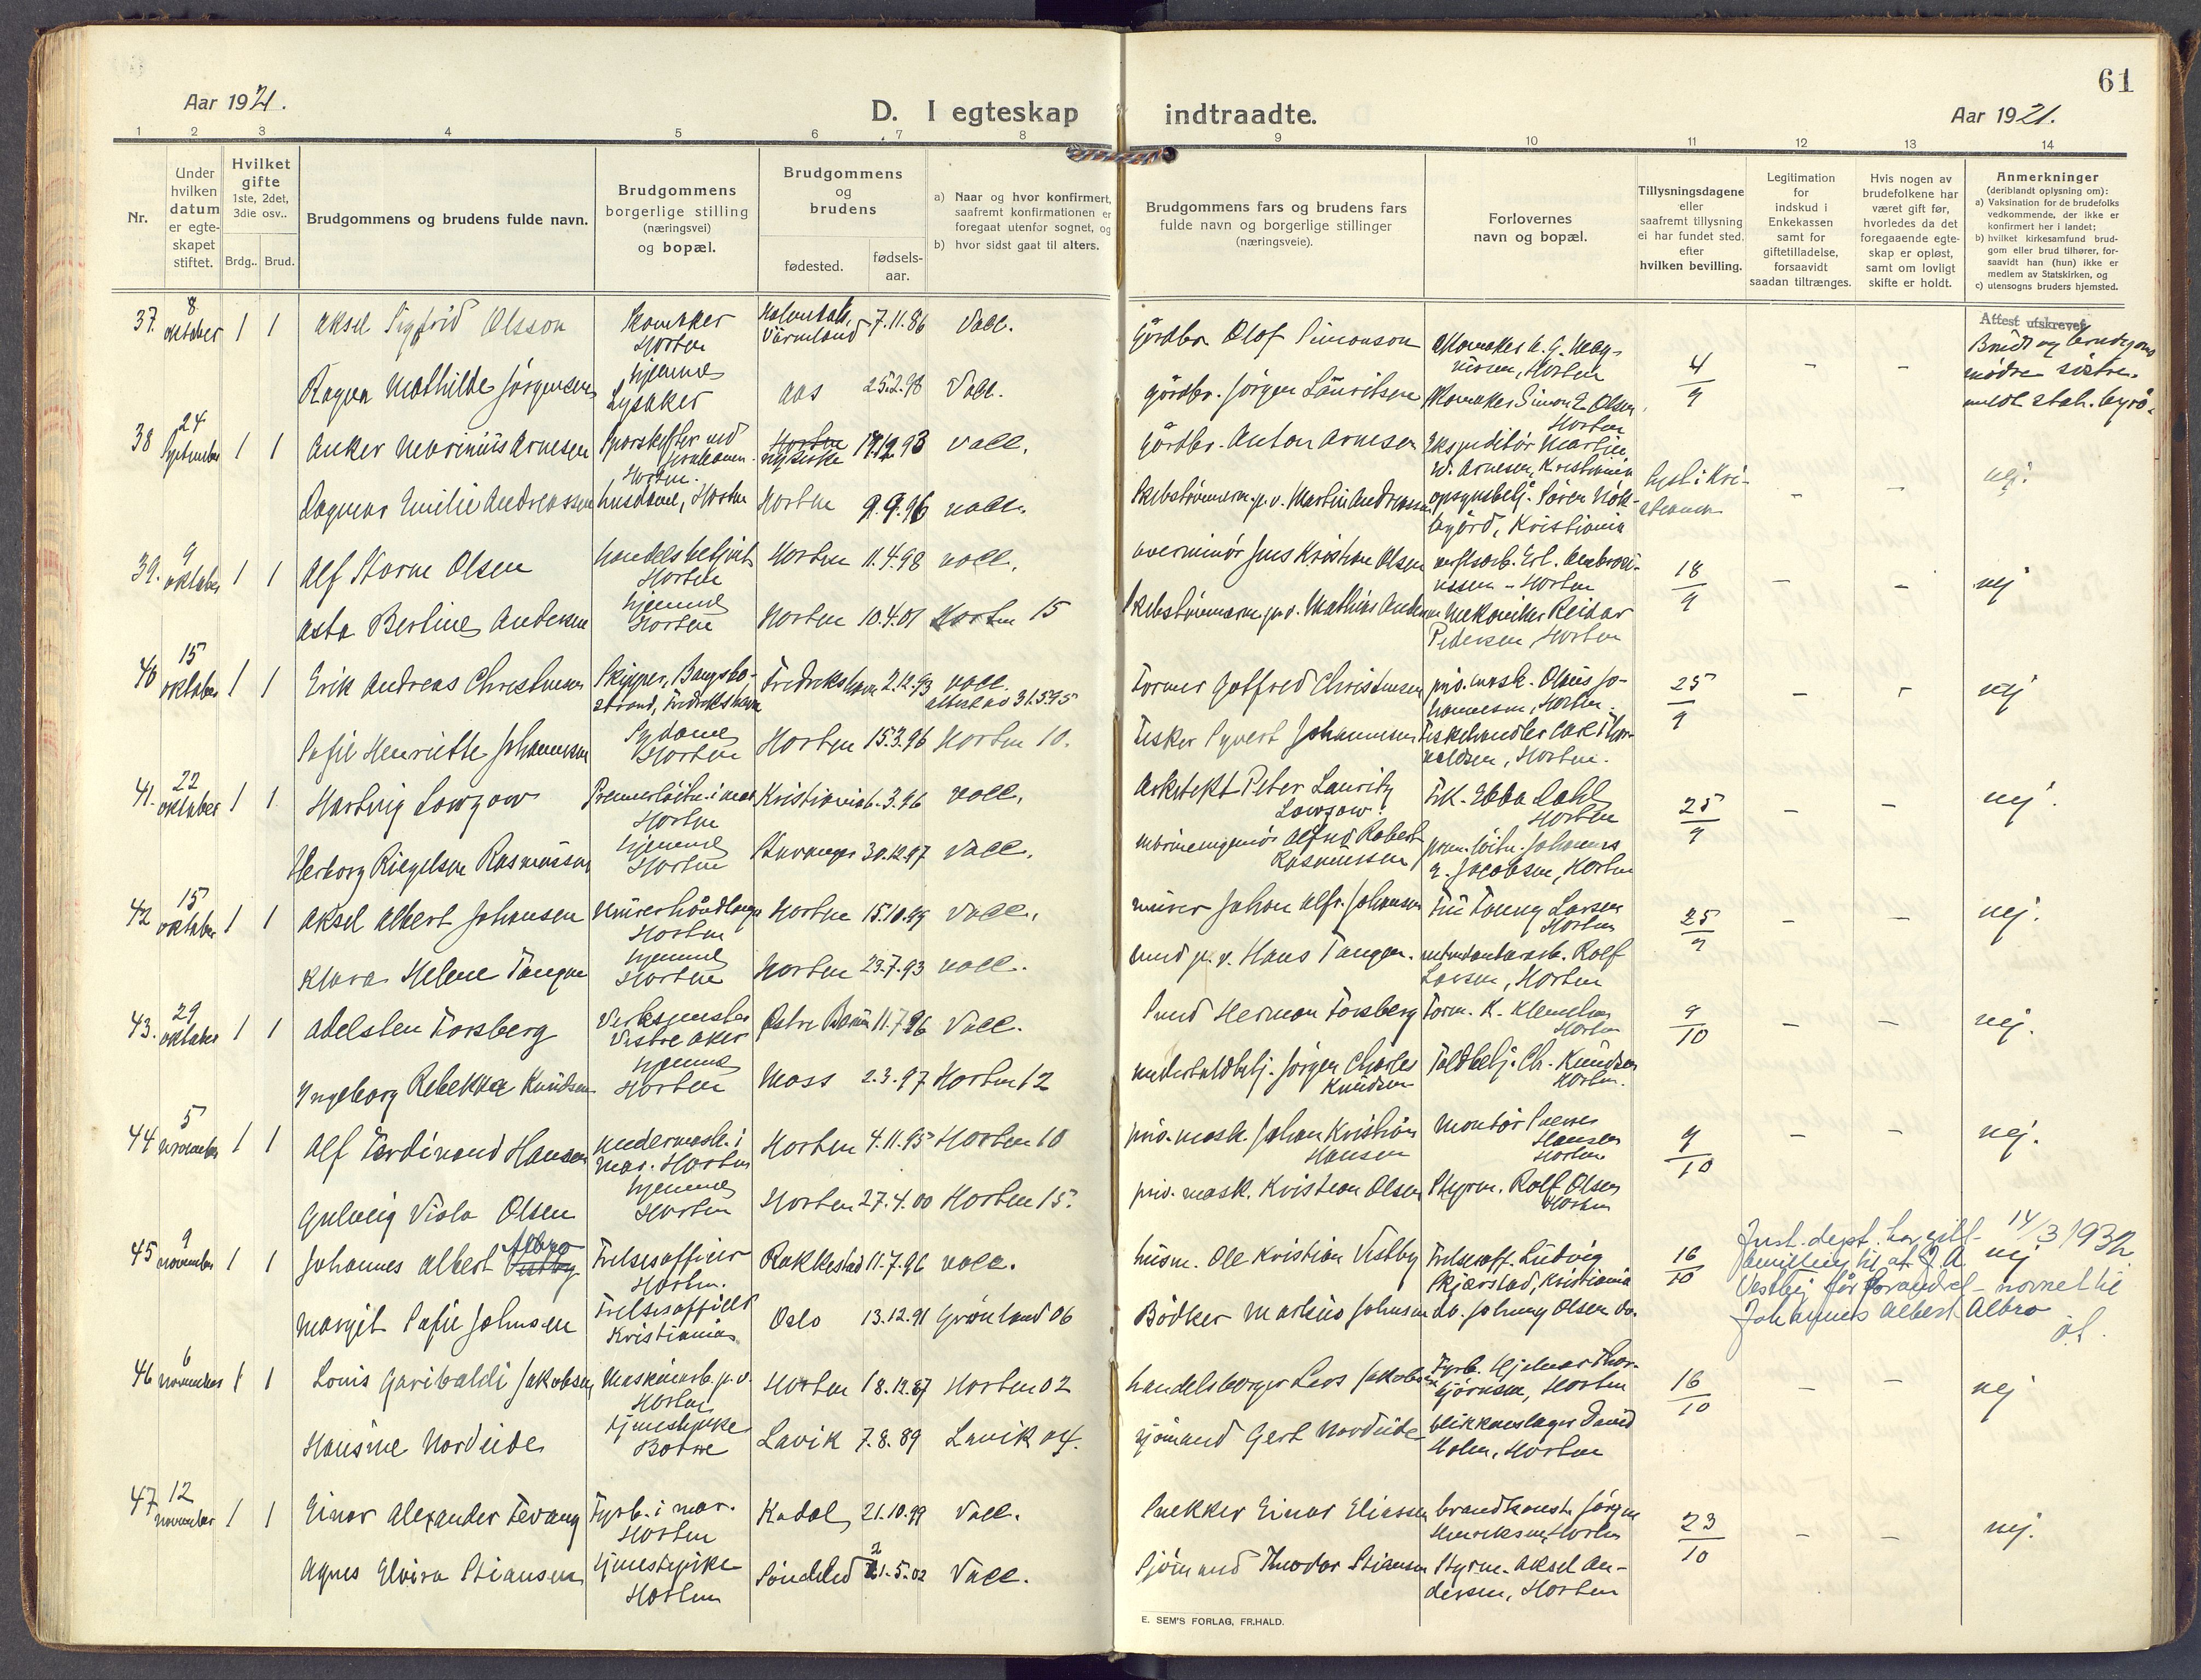 61
Aar 1921.
D. I egteskap indtraadte.
Aar 1921.
1 2 3 4 5 6 7 8 9 10 11 12 13 14
Nr.
Under hvilken datum er egte- skapet stiftet.
Hvilket gifte 1ste, 2det, 3die osv..
Brdg.. Brud.
Brudgommens og brudens fulde navn.
Brudgommens borgerlige stilling (næringsvei) og bopæl.
Brudgommens og brudens
fødested. fødsels- aar.
a) Naar og hvor konfirmert, saafremt konfirmationen er foregaat utenfor sognet, og
b) hvor sidst gaat til alters.
Brudgommens fars og brudens fars fulde navn og borgerlige stillinger (næringsveie).
Forlovernes navn og bopæl.
Tillysningsdagene eller saafremt tillysning ei har fundet sted, efter hvilken bevilling.
Legitimation for indskud i Enkekassen samt for giftetilladelse, forsaavidt saadan tiltrænges.
Hvis nogen av brudefolkene har været gift før, hvorledes da det foregaaende egte- skap er opløst, samt om lovligt skifte er holdt.
Anmerkninger (deriblandt oplysning om):
a) Vaksination for de brudefolks vedkommende, der ikke er konfirmert her i landet;
b) hvilket kirkesamfund brud- gom eller brud tilhører, for- saavidt han (hun) ikke er medlem av Statskirken, og
c) utensogns bruders hjemsted.
37. 8 oktober 1 1 Aksel Sigfrid Olsson Skomaker Horten Värmland 7.11.86 Vacc. Gårdbr. Olof Simonson Skomaker Horten 4/9 - - Attest utskrevet
Ragna Mathilde Jørgensen hjemme Lysaker Aas 25.2.98 Vacc. gårdbr. Jørgen Lauritsen Skomaker Simon E. Olsen, Horten
38 24 September 1 1 Anker Marinius Arnesen Horten. Nykirke 17.12.93 vacc. Gårdbr. Anton Arnesen Ekspeditør Martin W. Arnesen, Kristiania lyst i Kri- stiania - - nej.
Dagmar Emilie Andreassen husdame, Horten Horten 9.9.96 vacc. Skibstømmerm. p.v. Martin Andreassen Kristiania
39. 9 oktober 1 1 Alf Storm Olsen handelsbetjent Horten Horten 11.4.98 vacc. overminør Jens Kristian Olsen Horten 18/9 - - nej
Asta Bertine Andersen hjemme Horten Horten 10.4.01 Horten 15 Skibstømmerm. p.v. Mathias Andersen Mekaniker Reidar Pedersen, Horten
40 15 oktober 1 1 Erik Andreas Christensen Skipper, Bangsbo- strand, Fredrikshavn Fredrikshavn 2.12.93 vacc. attest av 31.5.95 Former Gotfred Christensen pid. mask. Olaus Jo- hannesen, Horten. 25/9 - - nej
Sofie Henriette Johannesen Sydame Horten Horten 15.3.96 Horten 10. Fisker Syvert Johannesen Fiskehandler Carl Thor- valdsen, Horten.
41. 22 oktober 1 1 Hartvig Lowzow Premierløitn. i mar. Horten Kristiania 6.3.96 vacc. Arkitekt Peter Lauritz Lowzow. Frk. Ebba Dahl Horten 25/9 - - nej.
Herborg Riegelsen Rasmussen hjemme Horten Stavanger 30.12.97 Vacc. marineingeniør Alfred Robert Rasmussen prem. løitn. Johannes E. Jacobsen, Horten
42 15 oktober 1 1 Aksel Albert Johansen Murerhåndlanger Horten Horten 15.10.99 Vacc. murer Johan Alfr. Johansen Fru Fanny Larsen Horten 25/9 - - nej.
Klara Helene Tangen hjemme Horten Horten 23.7.93 vacc. Hans Tangen. Rolf Larsen, Horten
43. 29 oktober 1 1 Adelsten Forsberg Verksmester Vestre Aker Østre Bærum 11.7.96 Vacc. Smed Herman Forsberg Form. K. Klemetsen Horten 9/10 - - nej.
Ingeborg Rebekka Knudsen hjemme Horten Moss 2.3.97 Horten 12 undertoldbetj. Jørgen Charles Knudsen Toldbetj. Ch. Knudsen Horten.
44 5 november 1 1 Alf Ferdinand Hansen undermask. i mar. Horten Horten 4.11.95 Horten 10 pid. mask. Johan Kristian Hansen Montør Hansen Horten 9/10 - - nej.
Gulveig Viola Olsen hjemme Horten Horten 27.4.00 Horten 15. pid. mask. Kristian Olsen Styrm. Rolf Olsen Horten
45 9 november 1 1 Johannes Albert Vestby Albro Frelsesofficer Horten. Rakkestad 11.7.96 vacc. husm. Ole Kristian Vestby Frelsesoff. Ludvig Skjærstad, Kristiania 16/10 nej
Just. dept. har gitt 14/3 1932 bevilling til at J. A. Vestby får forandret navnet til Johannes Albert Albro
Margit Sofie Johnsen Frelsesofficer Kristiania Oslo 13.12.91 Grønland 06 Bødker Markus Johnsen do. Johnny Olsen do.
46 6 november 1 1 Louis Garibaldi Jakobsen Maskinarb. p.v. Horten Horten 18.12.87 Horten 02 handelsborger Lars Jakobsen Fyrb. Hjelmar Thor- bjørnsen, Horten 16/10 - - nej
Hansine Nordeide tjenestepike Borre Lavik 7.8.89 Lavik 04. sjømand Gert Nordeide blikkenslager David Holm, Horten
47 12 november 1 1 Einar Alexander Tevang Fyrb. i mar. Horten Kodal 21.10.99 Vacc. Snekker Einar Eliassen brandkonst. Jørgen Henriksen, Horten 23/10 - - nej.
Agnes Elvira Stiansen tjenestepike Horten Søndeled 21.5.02 Vacc. Sjømand Theodor Stiansen Styrm. Aksel An- dersen, Horten
E. SEM'S FORLAG, FR.HALD.